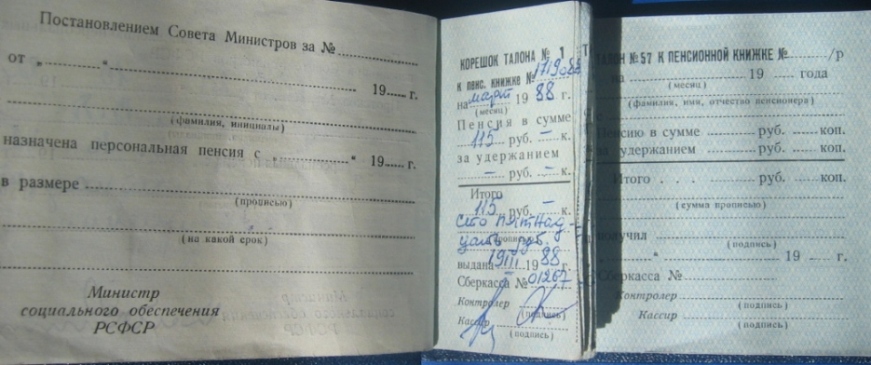 Постановлением Совета Министров за №
от „ “ 19 г.
(фамилия, инициалы)
назначена персональная пенсия с „ “ 19 г.
в размере
(прописью)
(на какой срок)
Министр
социального обеспечения
РСФСР
КОРЕШОК ТАЛОНА № 1
к пенс. книжке №
на март 1988 г.
(месяц)
Пенсия в сумме
115 руб. – к.
за удержанием
– руб. – к.
Итого
115 руб. – к.
сто пятнад-
цать руб.
выдана 19/III 1988 г.
Сберкасса № 01267
Контролер
(подпись)
Кассир
(подпись)
ТАЛОН № 57 К ПЕНСИОННОЙ КНИЖКЕ № /р
на 19 года
(месяц)
(фамилия, имя, отчество пенсионера)
Пенсию в сумме руб. коп.
за удержанием руб. коп.
Итого . . . руб. коп.
(сумма прописью)
получил
(подпись)
„ “ 19 г.
Сберкасса №
Контролер
(подпись)
Кассир
(подпись)